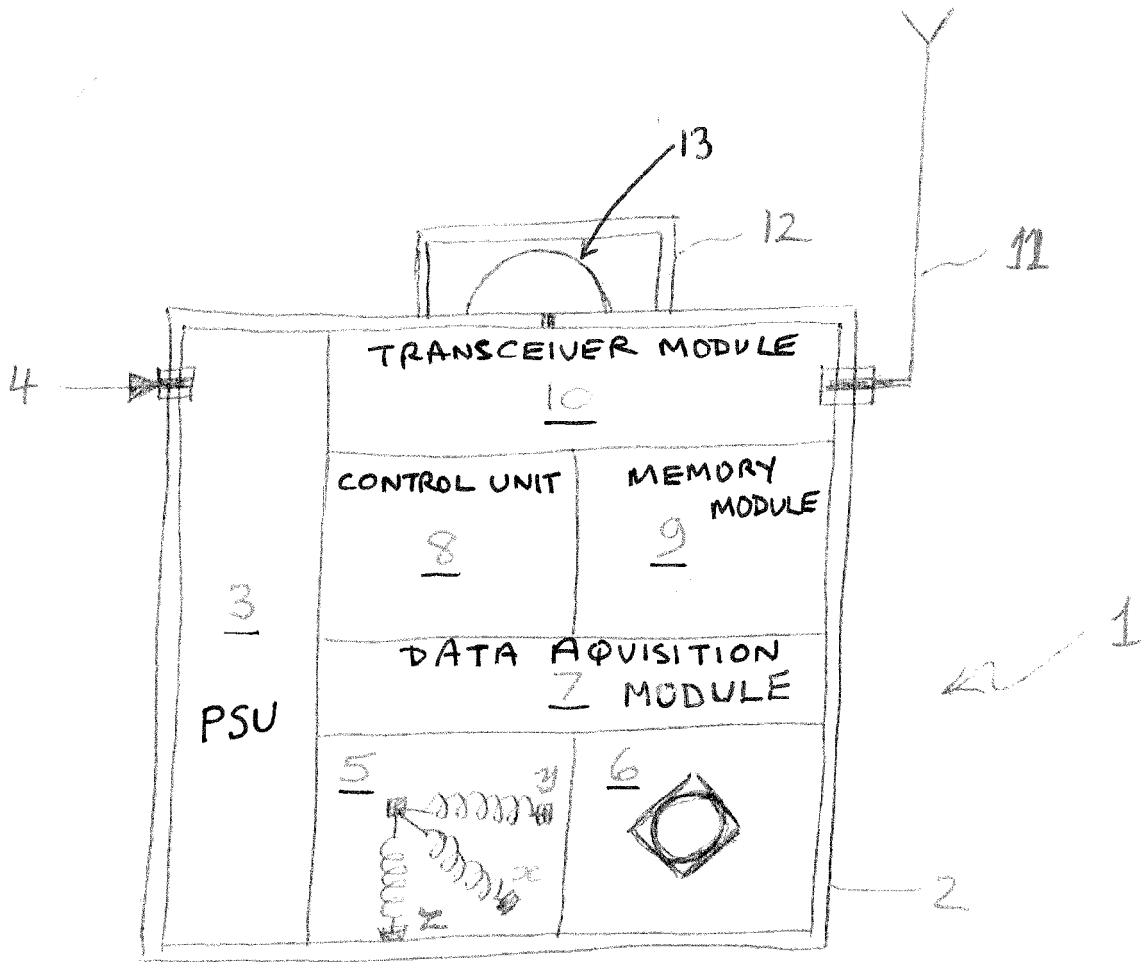 13
12
11
TRANSCEIVER MODULE
4
10
CONTROL UNIT
MEMORY
MODULE
8
9
3
1
DATA AQUISITION
7 MODULE
PSU
5
6
y
x
2